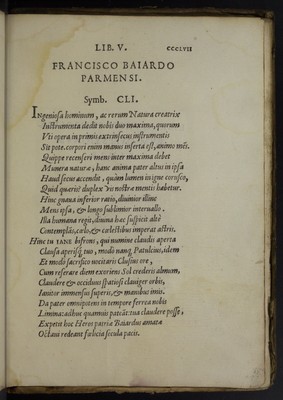 LIB. V. CCCLVII
FRANCISCO BAIARDO
PARMENSI.
Symb. CLI.
Ingeniosa hominum, ac rerum Natura creatrix
Instrumenta dedit nobis duo maxima, quorum
Vti opera in primis extrinsecus instrumentis
Sit pote. corpori enim manus inserta est, animo mẽs.
Quippe recenseri mens inter maxima debet
Munera naturæ, hanc anima pater altus in ipsa
Haud secus accendit, quàm lumen in igne corusco,
Quid quæris? duplex vis nostræ mentis habetur.
Hinc gnaua inferior ratio, diuinior illinc
Mens ipsa, & longo sublimior interuallo.
Illa humana regit, diuina hæc suspicit altè
Contemplãs, cœlo, & cœlestibus imperat astris.
Hinc tu IANE bifrons, qui numine claudis aperta
Clausa aperisq́; tuo, modò nanq; Patulcius, idem
Et modò sacrifico uocitaris Clusius ore,
Cum referare diem exoriens Sol crederis almum,
Claudere & occiduus spatiosi clauiger orbis,
Ianitor immensus superis, & manibus imis.
Da pater omnipotens in tempore ferrea nobis
Limina: aditus quamuis pateãt: tua claudere posse,
Expetit hoc Heros patria Baiardus amata
Octaui redeant fulicia secula pacis.